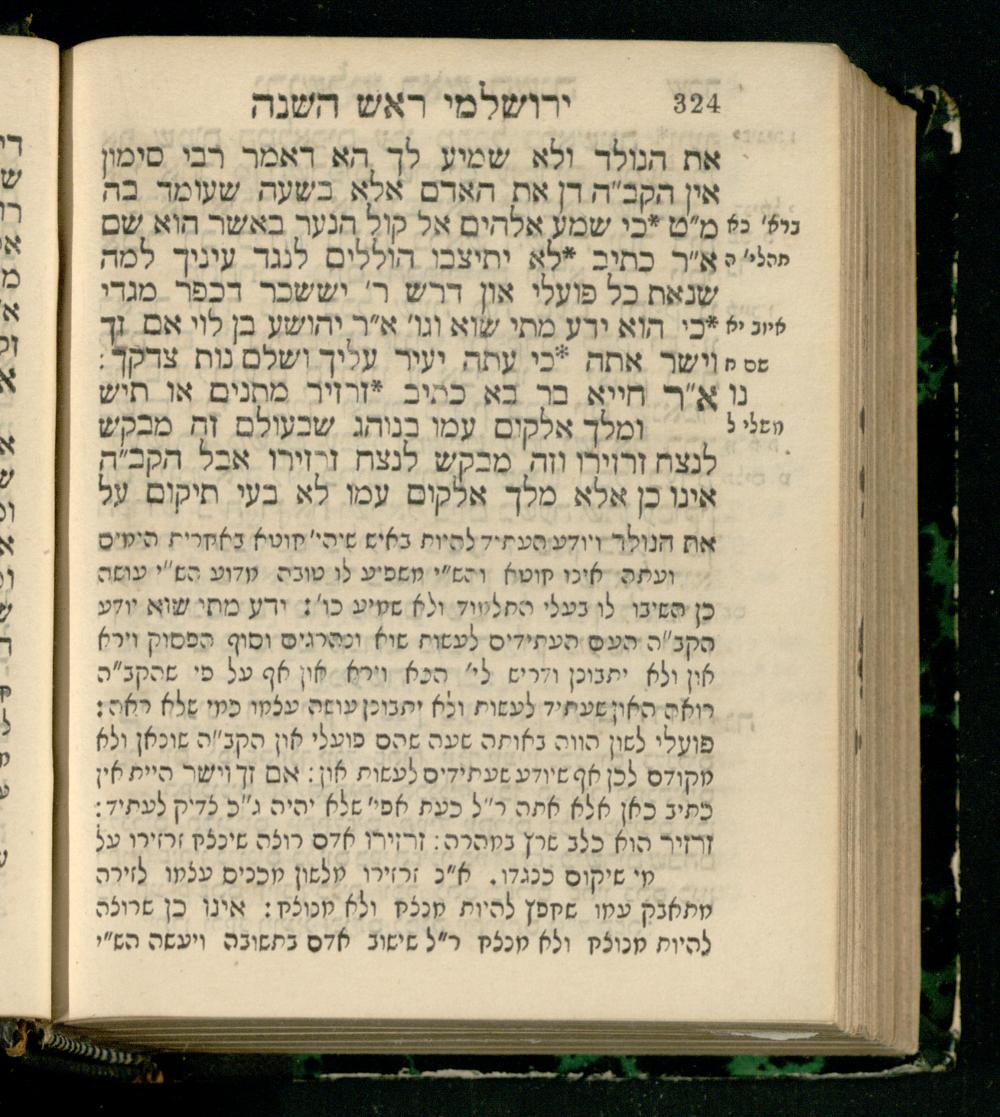 324 ירושלמי ראש השנה
את הנולד ולא שמיע לך הא דאמר רבי סימון
אין הקב"ה דן את האדם אלא בשעה שעומד בה
ברא' כא מ"ט *כי שמע אלהים אל קול הנער באשר הוא שם
תהלי' ה א"ר כתיב *לא יתיצבו הוללים לנגד עיניך למה
שנאת כל פועלי און דרש ר' יששכר דכפר מגדי
איוב יא *כי הוא ידע מתי שוא וגו' א"ר יהושע בן לוי אם זך
שם ח וישר אתה *כי עתה יעיר עליך ושלם נות צדקך:
נו א"ר חייא בר בא כתיב *זרזיר מתנים או תיש
משלי ל ומלך אלקום עמו בנוהג שבעולם זה מבקש
לנצח זרזירו וזה מבקש לנצח זרזירו אבל הקב"ה
אינו כן אלא מלך אלקום עמו לא בעי תיקום על
את הנולד ויודע העתיד להיות באיש שיהי' חוטא באחרית הימים
ועתה אינו חוטא והש"י משפיע לו טובה מדוע הש"י עושה
כן השיבו לו בעלי התלמוד ולא שמיע כו': ידע מתי שוא יודע
הקב"ה העם העתידים לעשות שוא וכהרגים וסוף הפסוק וירא
און ולא יתבונן ודריש לי' הכא וירא און אף על פי שהקב"ה
רואה האון שעתיד לעשות ולא יתבונן עושה עצמו כמי שלא ראה:
פועלי לשון הווה באותה שעה שהם פועלי און הקב"ה שונאן ולא
מקודם לכן אף שיודע שעתידים לעשות און: אם זך וישר היית אין
כתיב כאן אלא אתה ר"ל כעת אפי' שלא יהיה ג"כ צדיק לעתיד:
זרזיר הוא כלב שרץ במהרה: זרזירו אדם רוצה שינצח זרזירו על
מי שיקום כנגדו. א"נ זרזירו מלשון מכניס עצמו לזירה
מתאבק עמו שקפץ להיות מנצח ולא מנוצח: אינו כן שרוצה
להיות מנוצח ולא מנצח ר"ל שישוב אדם בתשובה ויעשה הש"י